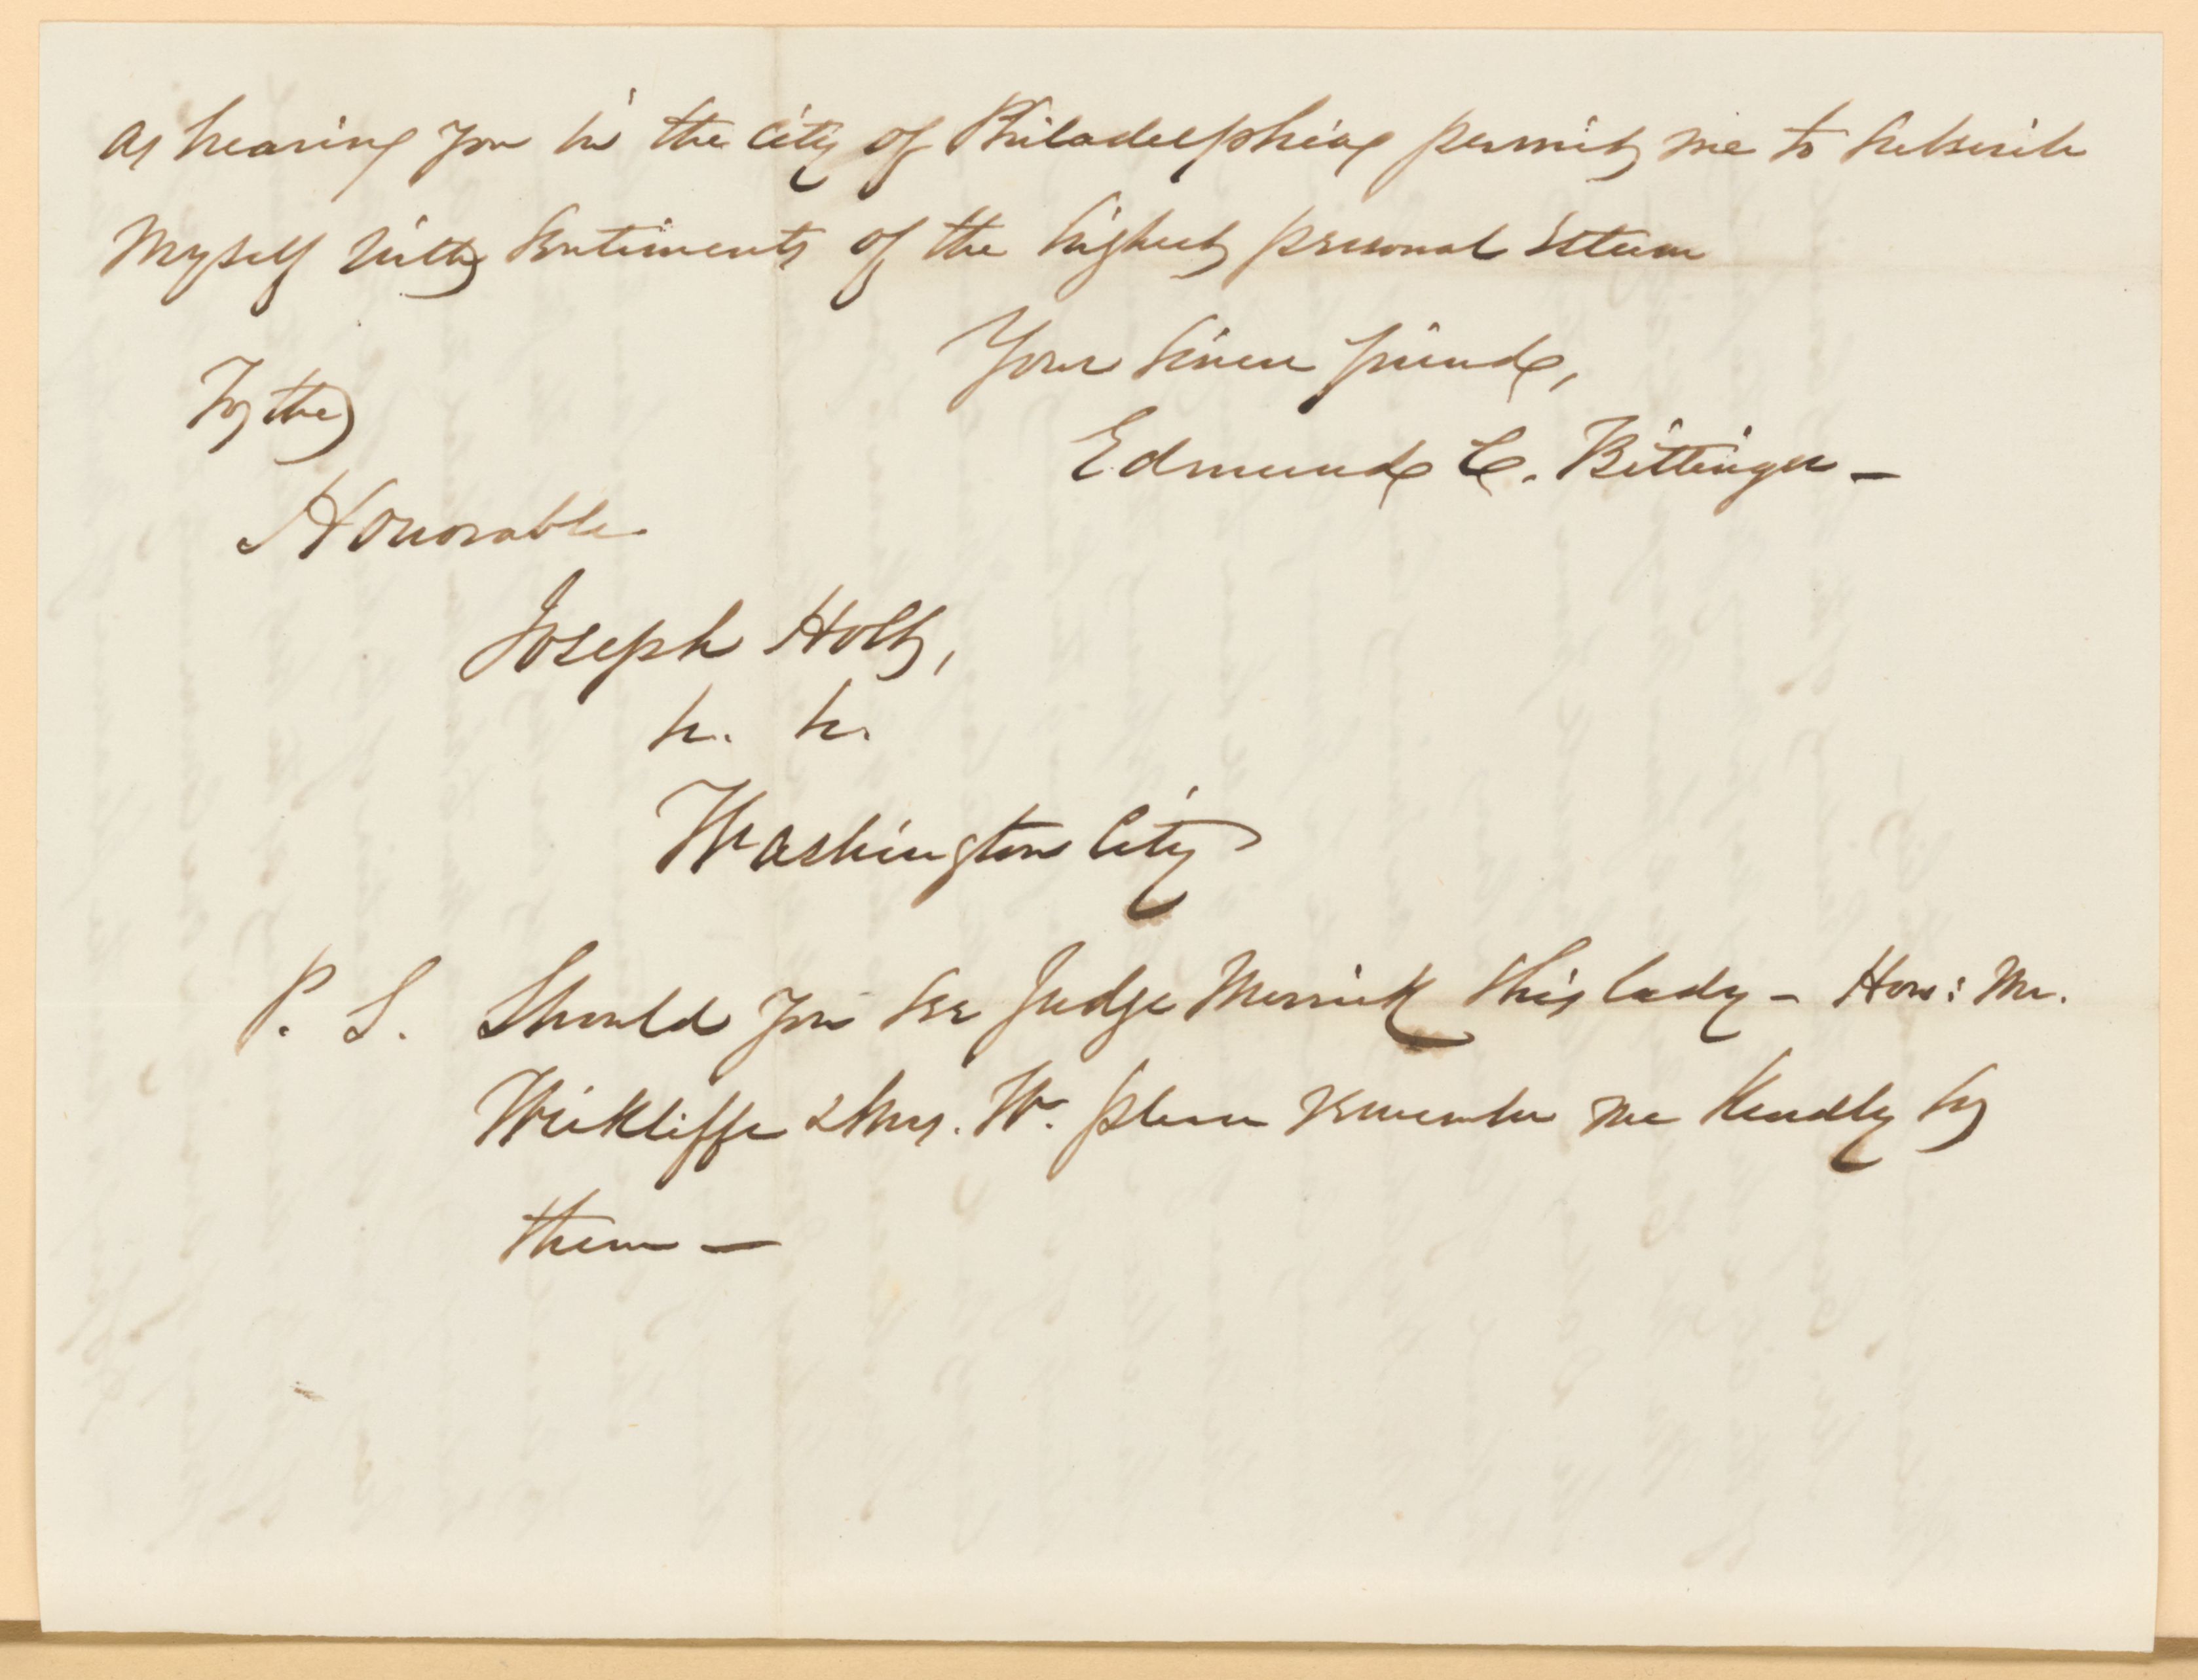 as hearing you in the City of Philadelphia permit me to subscribe
myself with sentiments of the highest personal esteem
Your sincere friend,
To the
Edmund C. Bittinger —
Honorable
Joseph Holt,
&c. &c.
Washington City
P. S. Should you see Judge Merrick & his lady — Hon: Mr.
Wickliffe & Mrs. W. please remember me kindly to
them —